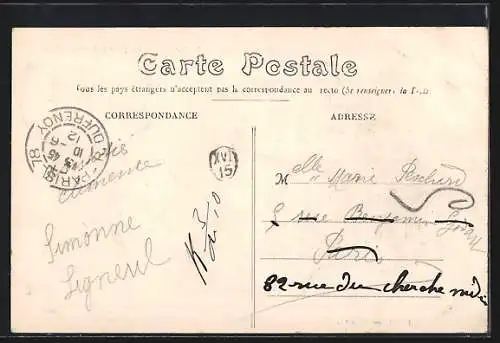 Carte Postale
Tous les pays étrangers n'acceptent pas la correspondance au recto (Se renseigner à la Poste)
CORRESPONDANCE
ADRESSE
PARIS
R. DUFRENOY
78
Simonne
Ligneul
M elle Marie
5 rue Benjamin
Paris
82 rue du cherche midi